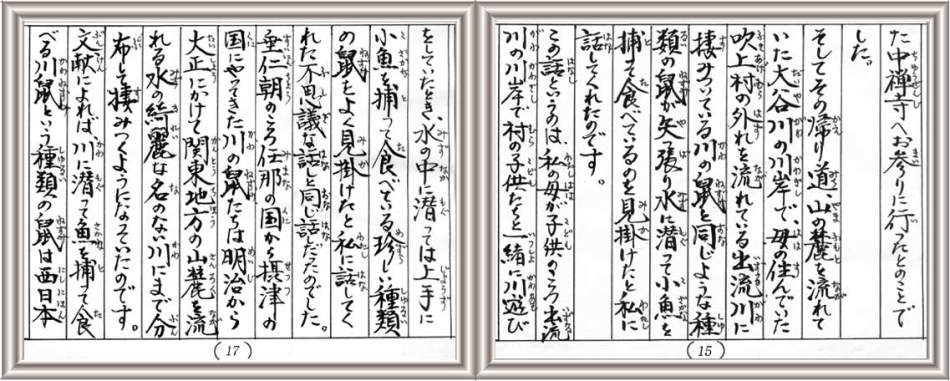 た中禅寺へお参りに行ったとのことで
した。
そしてその帰り道、山の麓を流れて
いた大谷川の川岸で、母の住んでいた
吹上村の外れを流れている出流川に
棲みついている川の鼠と同じような種
類の鼠が矢っ張り水に潜って小魚を
捕って食べているのを見掛けたと私に
話してくれたのです。
この話というのは、私の母が子供のころ出流
川の川岸で村の子供たちと一緒に川遊び
(15)
をしていたとき、水の中に潜っては上手に
小魚を捕って食べている珍しい種類
の鼠をよく見掛けたと私に話してく
れた不思議な話しと同じ話だったのでした。
垂仁朝のころ任那の国から摂津の
国にやってきた川の鼠たちは明治から
大正にかけて関東地方の山麓を流
れる水の綺麗な名のない川にまで分
布して棲みつくようになっていたのです。
文献によれば、川に潜って魚を捕って食
べる川鼠という種類の鼠は西日本
(17)